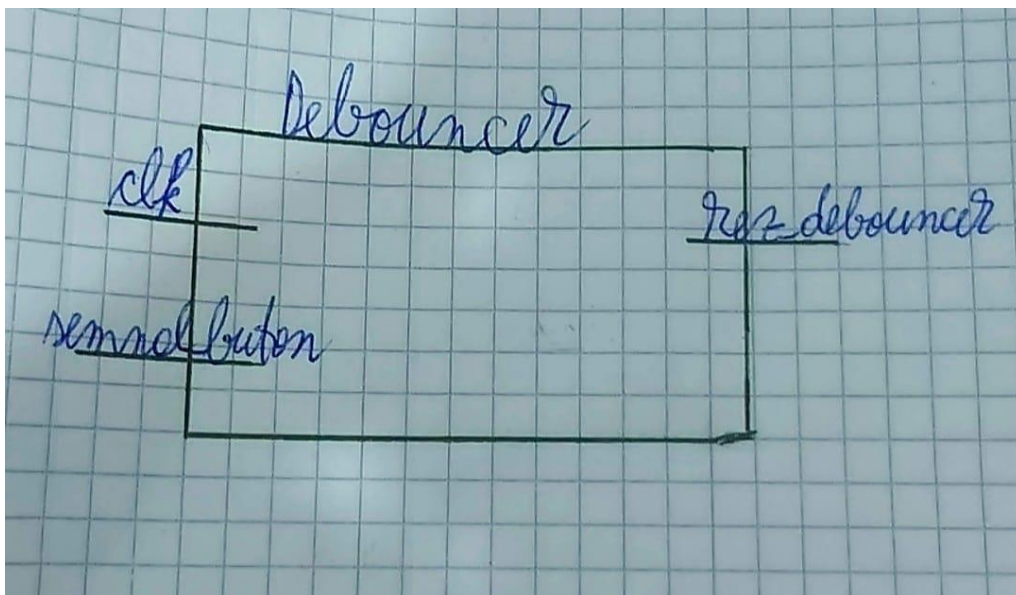 Debouncer
clk
rez_debouncer
semnal buton